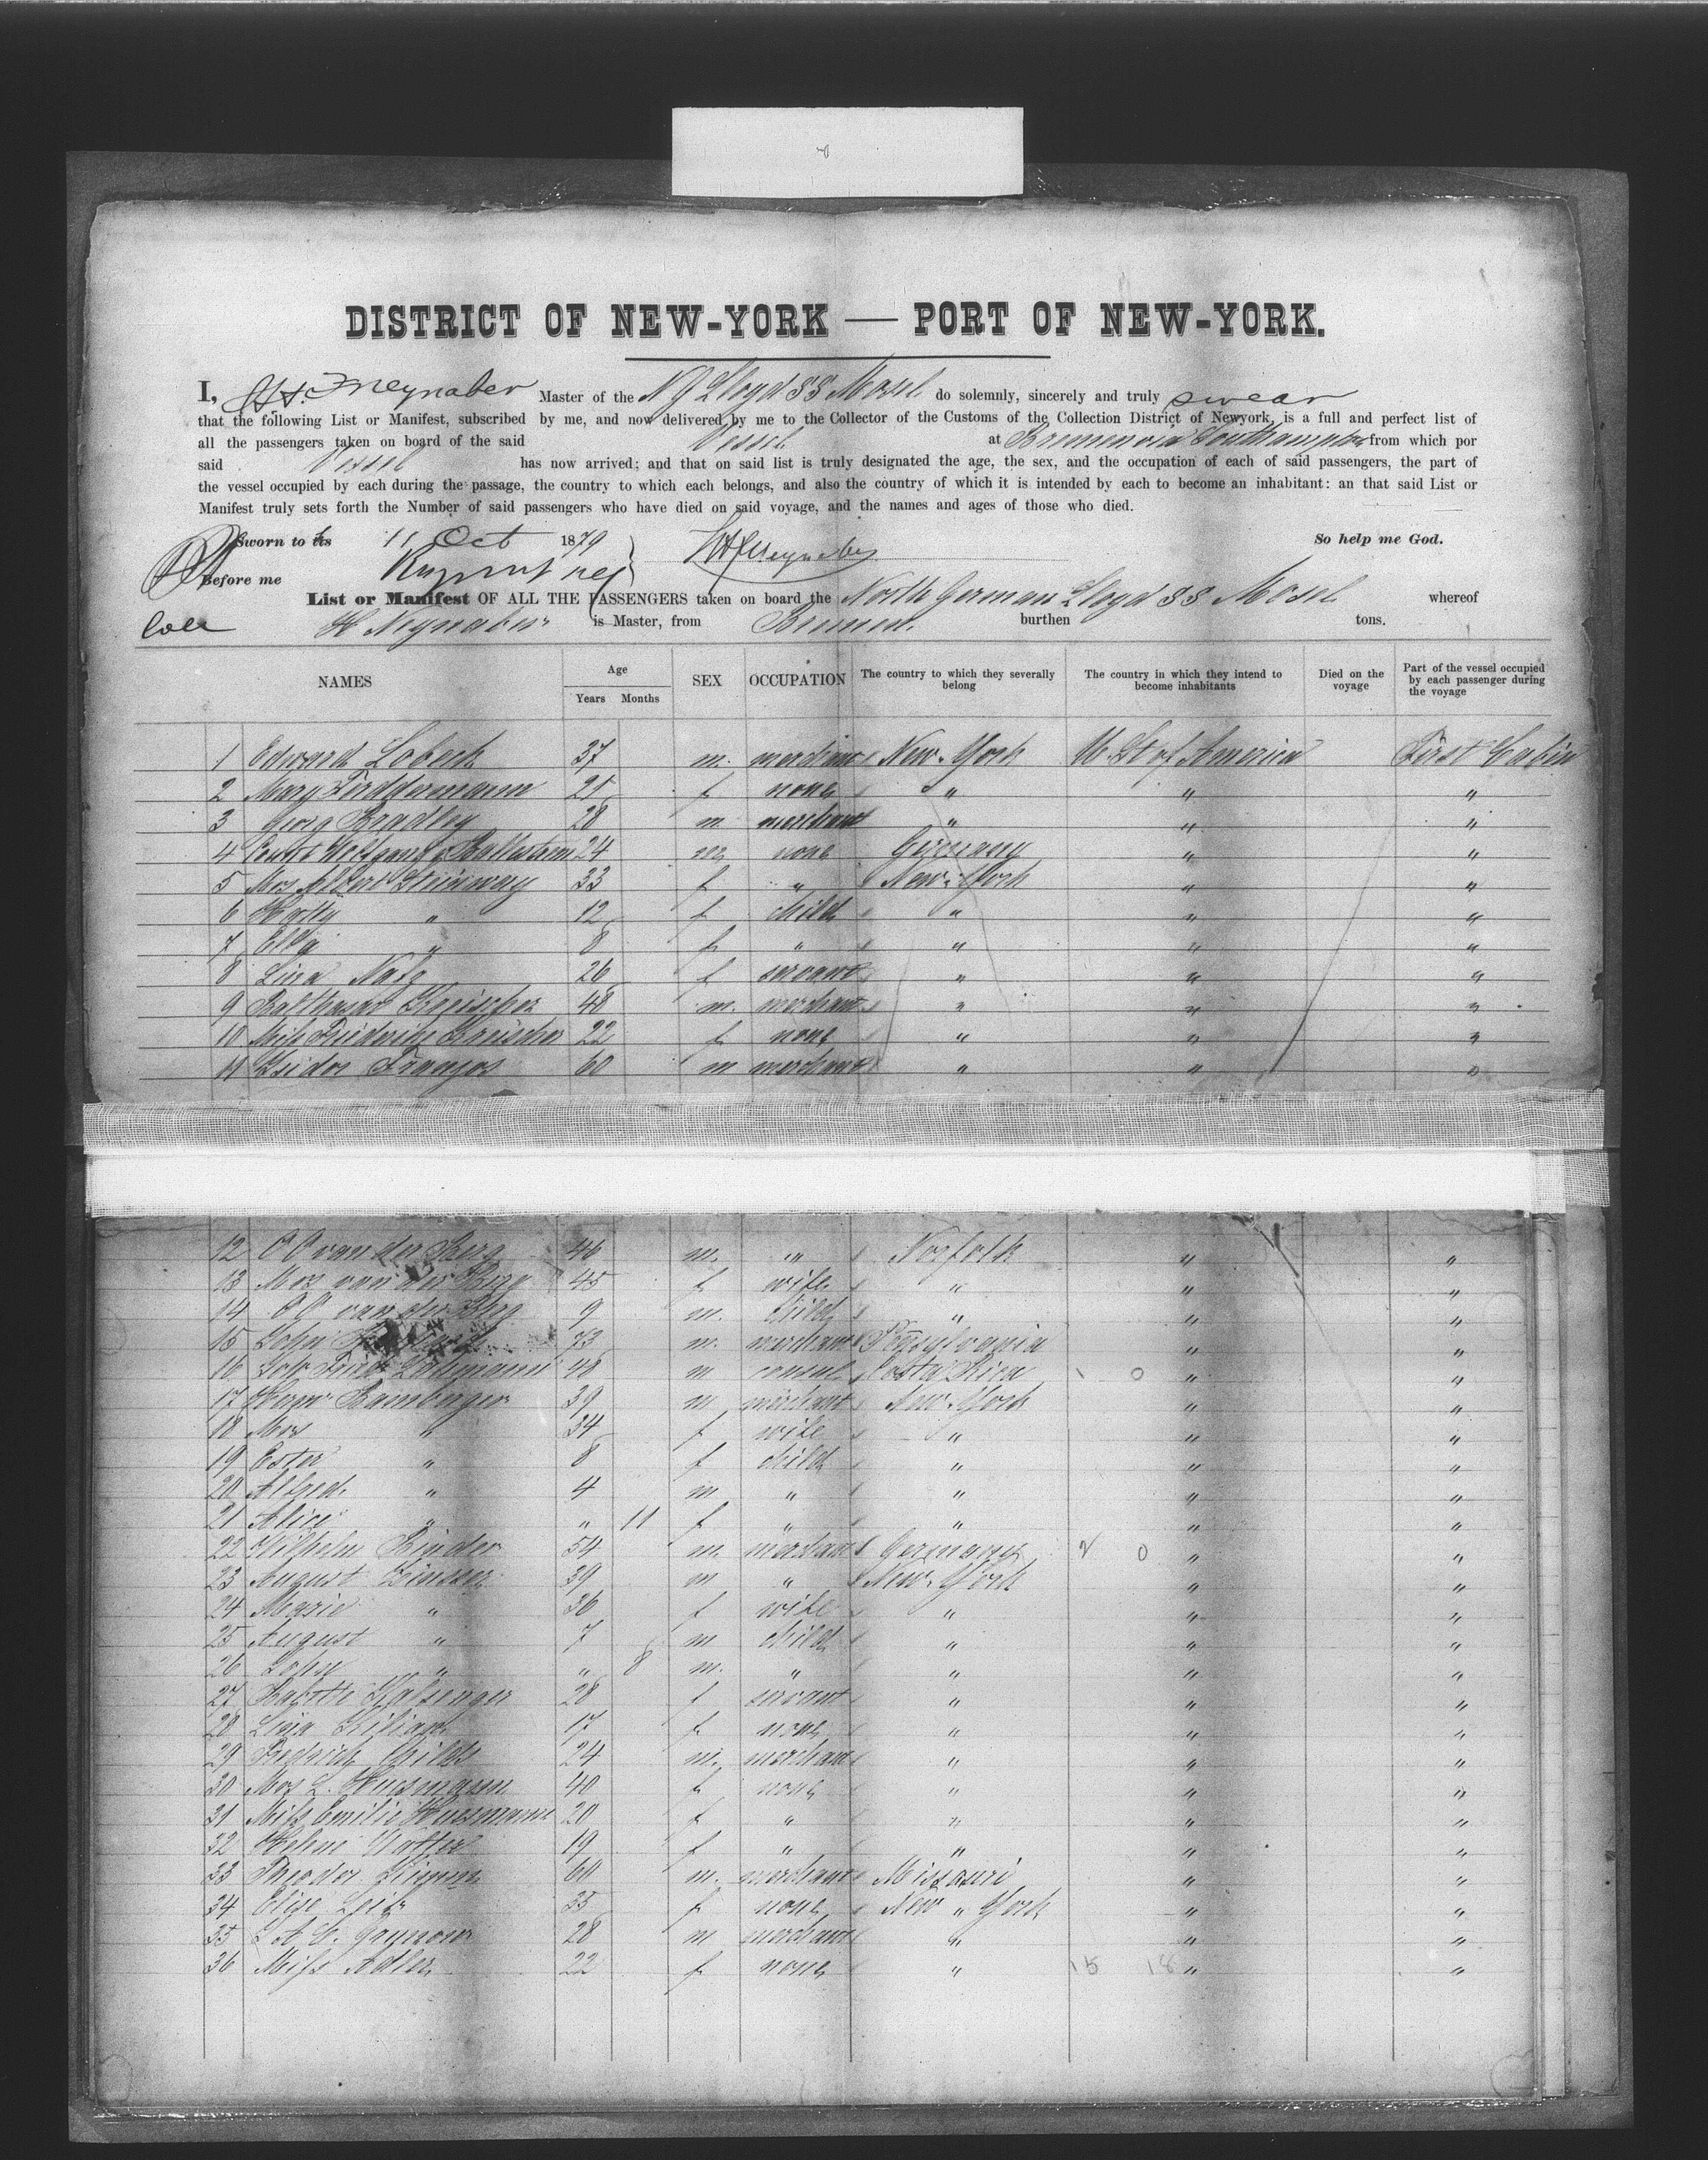 DISTRICT OF NEW-YORK — PORT OF NEW-YORK.
I, H. F. Neynaber Master of the N G Lloyd SS Mosel do solemnly, sincerely and truly swear
that the following List or Manifest, subscribed by me, and now delivered by me to the Collector of the Customs of the Collection District of Newyork, is a full and perfect list of
all the passengers taken on board of the said Vessel at Bremen via Southampton from which por
said Vessel has now arrived; and that on said list is truly designated the age, the sex, and the occupation of each of said passengers, the part of
the vessel occupied by each during the passage, the country to which each belongs, and also the country of which it is intended by each to become an inhabitant: an that said List or
Manifest truly sets forth the Number of said passengers who have died on said voyage, and the names and ages of those who died.
Sworn to 11 Oct 1879 So help me God.
Before me
List or Manifest OF ALL THE PASSENGERS taken on board the North German Lloyd SS Mosel whereof
H Neynaber is Master, from Bremen. burthen tons.
NAMES Age Years Months SEX OCCUPATION The country to which they severally belong The country in which they intend to become inhabitants Died on the voyage Part of the vessel occupied by each passenger during the voyage
1 Edward Lobeck 37 m. merchant New-York U. St of America First Cabin
2 Mary 25 f none " " "
3 Georg Bradley 28 m merchant " " "
4 24 m none Germany " "
5 Mrs Albert Steinway 33 f " New-York " "
6 Hatty " 12 f child " " "
7 Ella " 8 f " " " "
8 Lina 26 f servant " " "
9 Balthasar Kreischer 48 m. merchant " " "
10 Miss Friederike Kreischer 22 f none " " "
11 Isidor 60 m merchant " " "
12 van der Berg 46 m. " Norfolk " "
13 Mrs van der Berg 45 f wife " " "
14 van der Berg 9 m. child " " "
15 John 73 m. merchant Pensylvania " "
16 Joh. Fried. Lahmann 48 m consul Costa Rica 1 0 " "
17 Herm Bamberger 39 m merchant New-York " "
18 Mrs " 34 f wife " " "
19 Ester " 8 f child " " "
20 Alfred " 4 m " " " "
21 Alice " " 11 f " " " "
22 Wilhelm Binder 54 m. merchant Germany 2 0 " "
23 August Zinsser 39 m " New-York " "
24 Marie " 36 f wife " " "
25 August " 7 m child " " "
26 John " " 8 m. " " " "
27 Babette 28 f servant " " "
28 Lina Kilian 17 f none " " "
29 Fredrich 24 m. merchant " " "
30 Mrs L. Huesmann 40 f none " " "
31 Miss Emilie Huesmann 20 f " " " "
32 Helene 19 f " " " "
33 Theodor Kimm 60 m. merchant Missouri " "
34 Elise 35 f none New " York " "
35 28 m merchant " " "
36 Miss Adler 22 f none " 15 18 " "